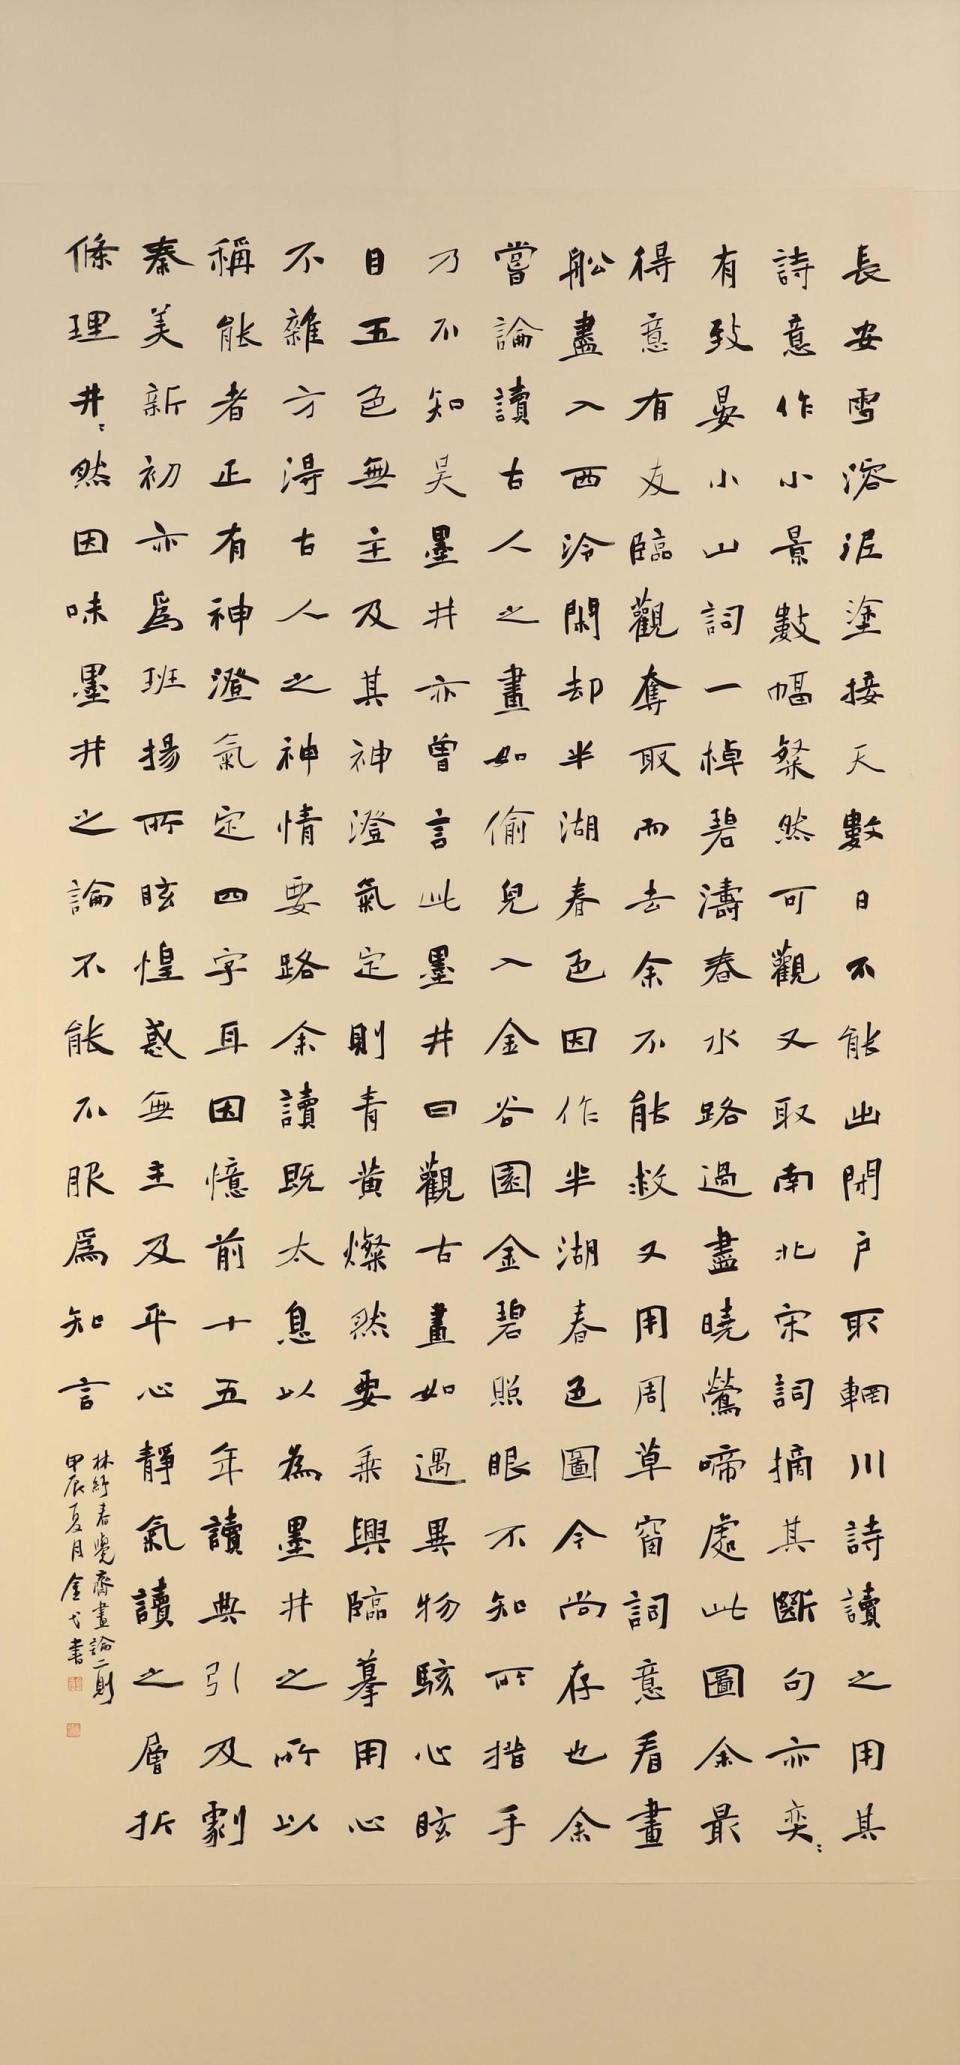 長安雪溶泥塗接天數日不能出閉戶取輞川詩讀之用其
詩意作小景數幅粲然可觀又取南北宋詞摘其斷句亦奕〻
有致晏小山詞一棹碧濤春水路過盡曉鶯啼處此圖余最
得意有友臨觀奪取而去余不能救又用周草窗詞意看畫
船盡入西泠閑却半湖春色因作半湖春色圖今尚存也余
嘗論讀古人之畫如偷兒入金谷園金碧照眼不知所措手
乃不知吴墨井亦曾言此墨井曰觀古畫如遇異物駭心眩
目五色無主及其神澄氣定則青黃燦然要乘興臨摹用心
不雜方得古人之神情要路余讀既太息以為墨井之所以
稱能者正有神澄氣定四字耳因憶前十五年讀典引及劇
秦美新初亦爲班揚所眩惶惑無主及平心靜氣讀之層折
條理井〻然因味墨井之論不能不服爲知言
林紓春覺齋畫論二則
甲辰夏月金弋書